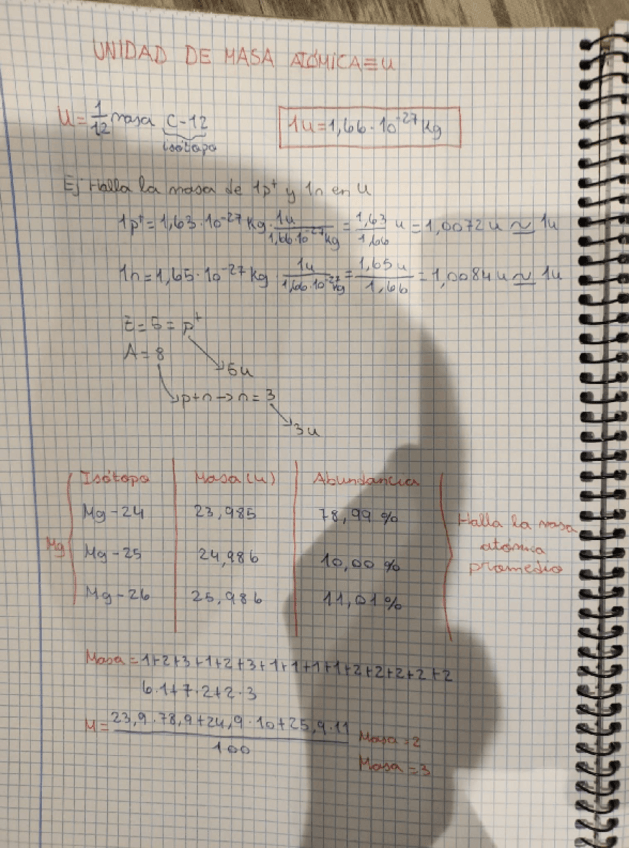 UNIDAD DE MASA ATÓMICA≡u
U=1/12 masa C-12
isótopo
1u=1,66·10^-27 Kg
Ej Halla la masa de 1p⁺ y 1n en u
1p⁺=1,63·10^-27 Kg · 1u/1,66·10^-27 Kg = 1,63/1,66 u = 1,0072 u ≃ 1u
1n=1,65·10^-27 Kg · 1u/1,66·10^-27 Kg = 1,65 u/1,66 = 1,0084 u ≃ 1u
Z=5=p⁺
A=8
5u
p+n→n=3
3u
Isótopo Masa(u) Abundancia
Mg-24 23,985 78,99 %
Mg
Mg-25 24,986 10,00 %
Mg-26 25,986 11,01 %
Halla la masa
atómica
promedio
Masa=1+2+3+1+2+3+1+1+1+1+2+2+2+2+2
6·1+7·2+2·3
M=23,9·78,9+24,9·10+25,9·11/100
Masa=2
Masa=3